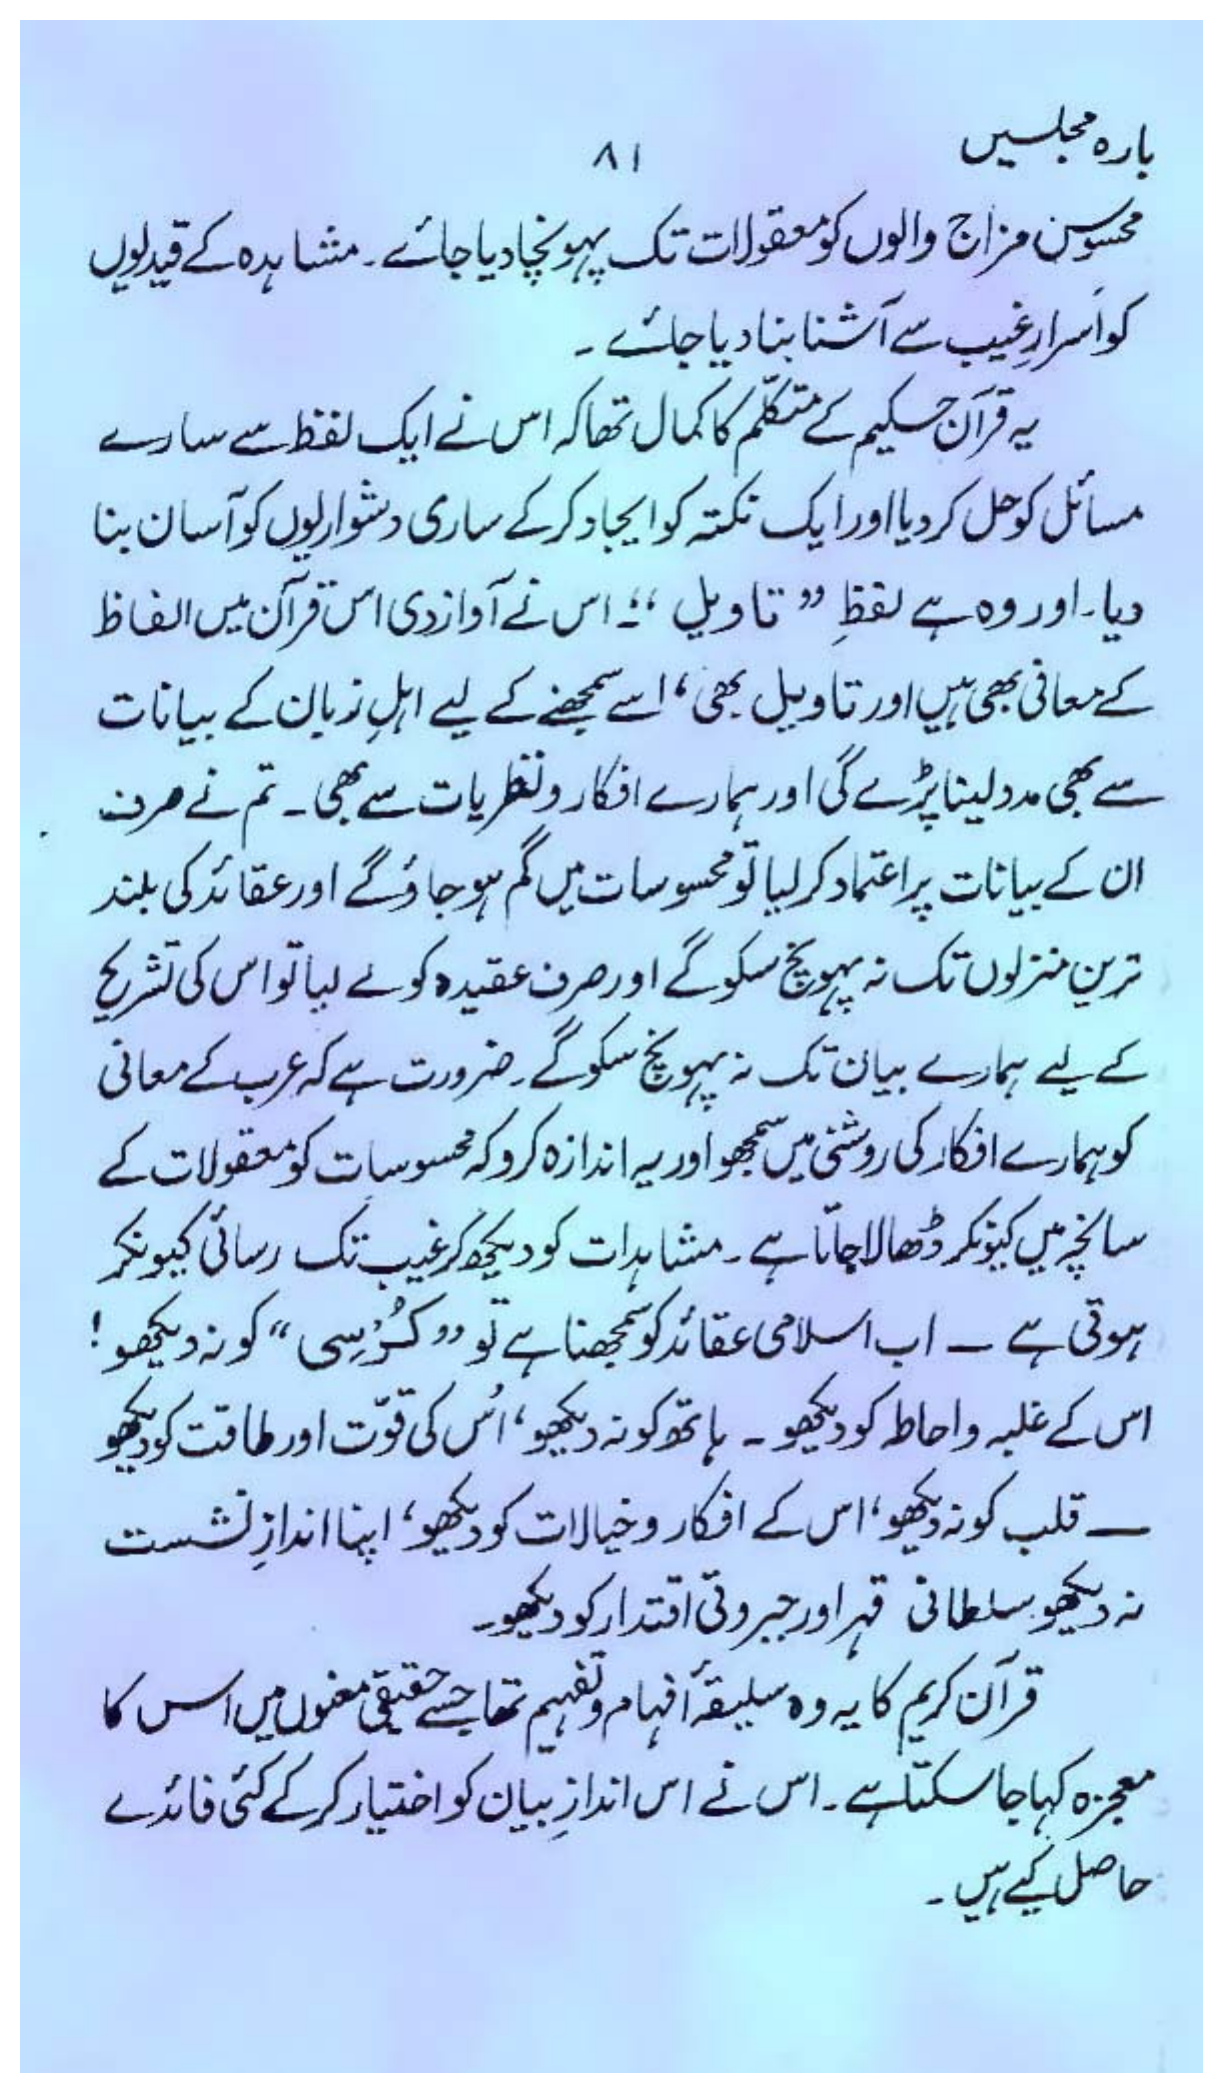 بارہ مجلسیں
۸۱
محسوس مزاج والوں کو معقولات تک پہونچا دیا جائے ۔ مشاہدہ کے قیدیوں
کو اَسرارِ غیب سے آشنا بنا دیا جائے ۔
یہ قرآن حکیم کے متکلّم کا کمال تھا کہ اس نے ایک لفظ سے سارے
مسائل کو حل کر دیا اور ایک نکتہ کو ایجاد کر کے ساری دشواریوں کو آسان بنا
دیا۔ اور وہ ہے لفظِ ” تاویل “۔ اس نے آواز دی اس قرآن میں الفاظ
کے معانی بھی ہیں اور تاویل بھی، اسے سمجھنے کے لیے اہلِ زبان کے بیانات
سے بھی مدد لینا پڑے گی اور ہمارے افکار و نظریات سے بھی ۔ تم نے صرف
ان کے بیانات پر اعتماد کر لیا تو محسوسات میں گم ہو جاؤ گے اور عقائد کی بلند
ترین منزلوں تک نہ پہونچ سکو گے اور صرف عقیدہ کو لے لیا تو اس کی تشریح
کے لیے ہمارے بیان تک نہ پہونچ سکو گے ۔ ضرورت ہے کہ عرب کے معانی
کو ہمارے افکار کی روشنی میں سمجھو اور یہ اندازہ کرو کہ محسوسات کو معقولات کے
سانچہ میں کیونکر ڈھالا جاتا ہے ۔ مشاہدات کو دیکھ کر غیب تک رسائی کیونکر
ہوتی ہے ــ اب اسلامی عقائد کو سمجھنا ہے تو ” کُرْسِی “ کو نہ دیکھو !
اس کے غلبہ و احاطہ کو دیکھو ۔ ہاتھ کو نہ دیکھو، اُس کی قوّت اور طاقت کو دیکھو
ــ قلب کو نہ دیکھو، اس کے افکار و خیالات کو دیکھو، اپنا اندازِ نشست
نہ دیکھو سلطانی قہر اور جبروتی اقتدار کو دیکھو۔
قرآن کریم کا یہ وہ سلیقۂ افہام و تفہیم تھا جسے حقیقی معنوں میں اس کا
معجزہ کہا جا سکتا ہے ۔ اس نے اس اندازِ بیان کو اختیار کر کے کئی فائدے
حاصل کیے ہیں ۔